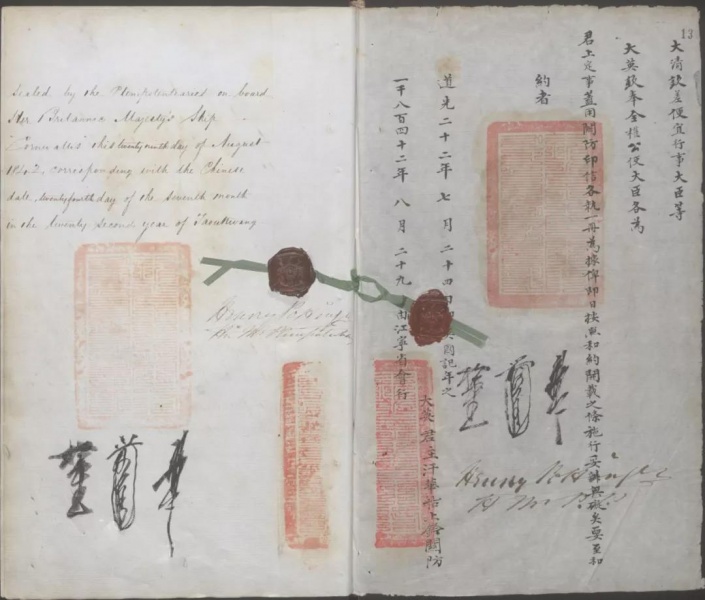 Sealed by the Plenipotentiaries on board
Her Britannic Majesty's Ship
Cornwallis this twenty ninth day of August
1842, corresponding with the Chinese
date, twenty fourth day of the seventh month
in the twenty second year of Taoukwang
Henry Pottinger
13
大清欽差便宜行事大臣等
大英欽奉全權公使大臣各為
君上定事蓋用關防印信各執一冊為據俾即日按照和約開載之條施行妥辦無礙矣要至和
約者
道光二十二年七月二十四日國記年之
一千八百四十二年八月二十九由江寧省會行
大英君主汗華船上鈐關防
Henry Pottinger